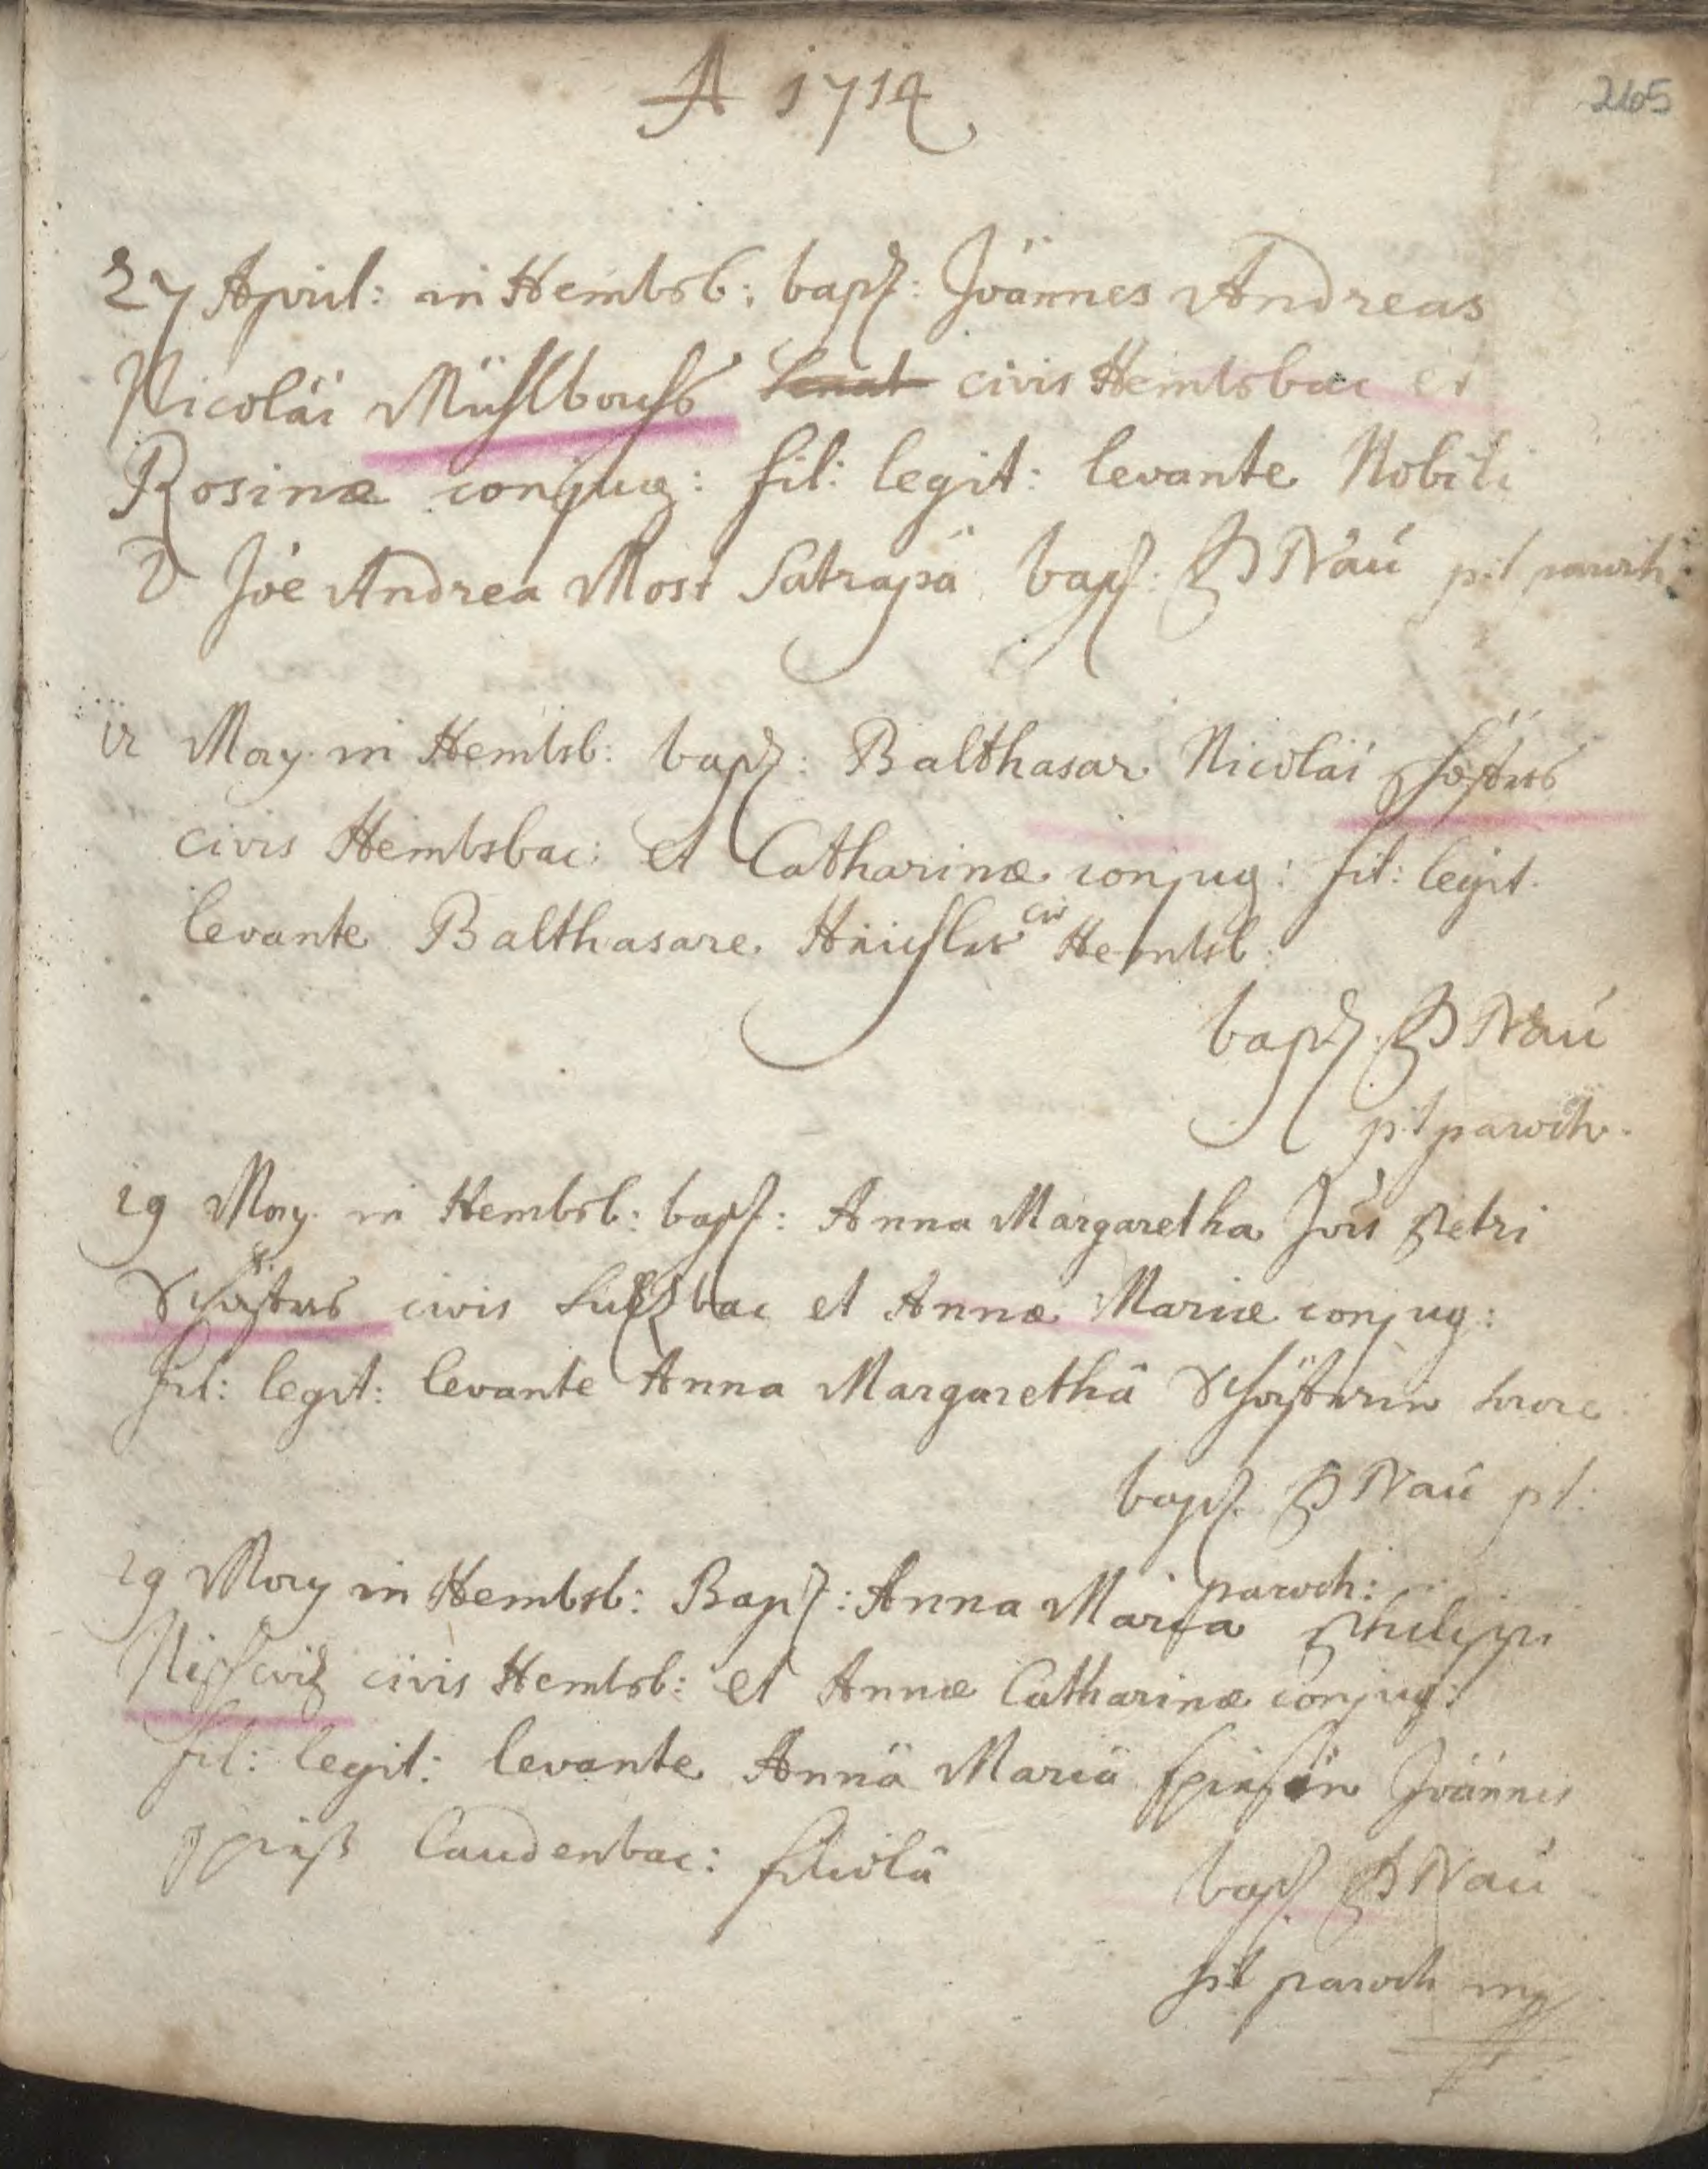 A 1714
265
27 April: in Hembsb: bapt: Joannes Andreas
Nicolai Mühlbachs civis Hembsbac et
Rosinæ conjug: fil: legit: levante Nobili
D Joe Andrea Most Satrapa bapt: P Nau p:t paroch:
12 May in Hembsb: bapt: Balthasar Nicolai
civis Hembsbac: et Catharinæ conjug: fil: legit.
levante Balthasare civ Hembsb:
bapt: P Nau
p:t paroch.
19 May in Hembsb: bapt: Anna Margaretha Jois Petri
civis Sultzbac et Annæ Mariæ conjug:
fil: legit: levante Anna Margarethâ sorore
bapt. P Nau p t:
paroch:
29 May in Hembsb: Bapt: Anna Maria Philippi
civis Hembsb: et Annæ Catharinæ conjug:
fil: legit: levante Annâ Mariâ Joannis
Spieß Laudenbac: filiolâ
bapt P Nau
p:t paroch mp